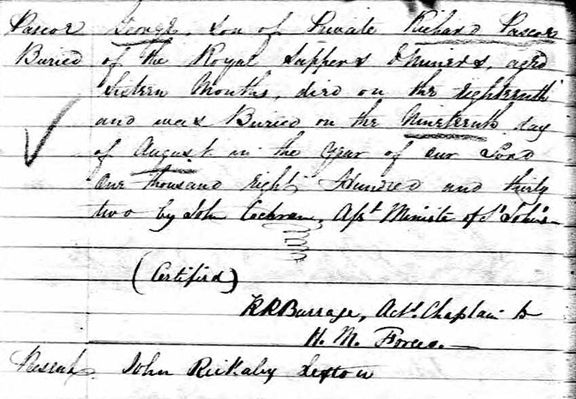 Pascoe George, Son of Private Richard Pascoe
Buried of the Royal Sappers & Miners, aged
Sixteen Months, died on the Eighteenth
and was Buried on the Nineteenth day
of August in the Year of our Lord
One thousand eight Hundred and thirty
two by John Cochran, Asst Minister of St John's
(Certified)
R R Burrage, Actg Chaplain to
H. M. Forces.
Present John Rickaby Sexton